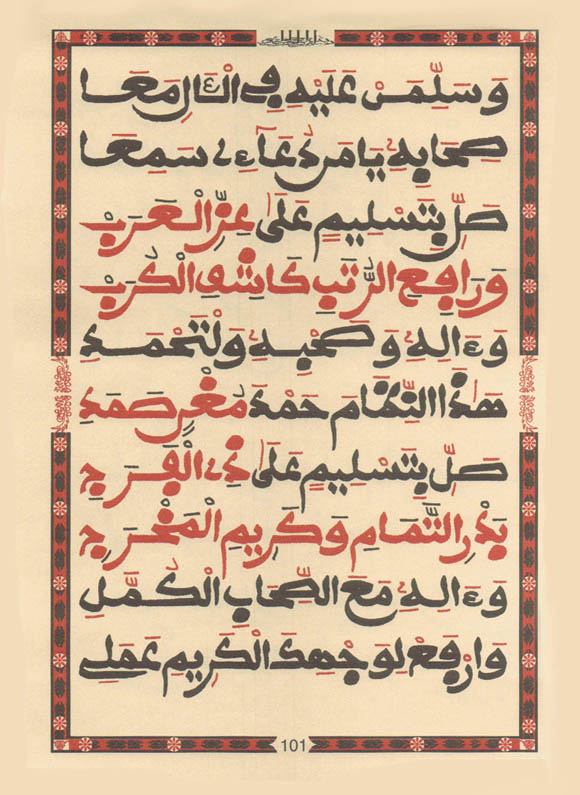 وَسَلِّمَنْ عَلَيْهِ فِي الْـَٔالِ مَعَا
صَحَابِهِ يَا مَنْ دُعَاءِي سَمِعَا
صَلِّ بِتَسْلِيمٍ عَلَى عِزِّ الْعَرَبْ
وَرَافِعِ الرُّتَبِ كَاشِفِ الْكُرَبْ
وَءَالِهِ وَصَحْبِهِ وَلْتَحْمَدِ
هَذَا النِّظَامَ حَمْدَ مُغْنٍ صَمَدِ
صَلِّ بِتَسْلِيمٍ عَلَى ذِي الْفَرَجِ
بَدْرِ التَّمَامِ وَكَرِيمِ الْمَخْرَجِ
وَءَالِهِ مَعَ الصِّحَابِ الْكُمَّلِ
وَارْفَعْ لِوَجْهِكَ الْكَرِيمِ عَمَلِي
101